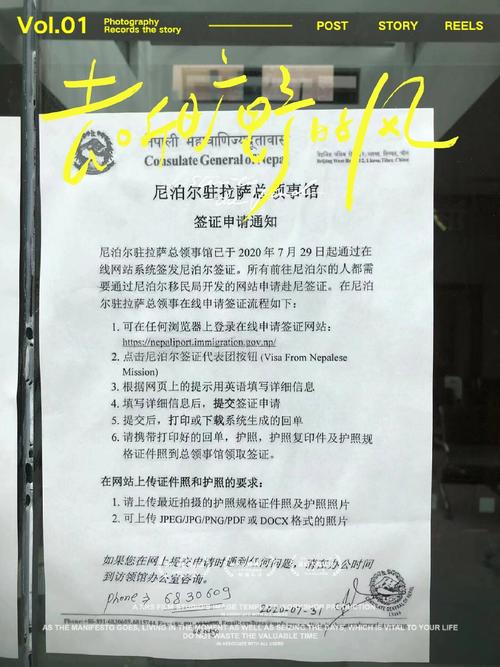 Vol.01
Photography
Records the story
POST
STORY
REELS
去和旷野的风
नेपाली महावाणिज्यदूतावास
Consulate General of Nepal
尼泊尔驻拉萨总领事馆
签证申请通知
尼泊尔驻拉萨总领事馆已于 2020 年 7 月 29 日起通过在
线网站系统签发尼泊尔签证。所有前往尼泊尔的人都需
要通过尼泊尔移民局开发的网站申请赴尼签证。在尼泊
尔驻拉萨总领事在线申请签证流程如下：
1. 可在任何浏览器上登录在线申请签证网站：
https://nepaliport.immigration.gov.np/
2. 点击尼泊尔签证代表团按钮 (Visa From Nepalese
Mission)
3. 根据网页上的提示用英语填写详细信息
4. 填写详细信息后，提交签证申请
5. 提交后，打印或下载系统生成的回单
6. 请携带打印好的回单，护照，护照复印件及护照规
格证件照到总领事馆领取签证。
在网站上传证件照和护照的要求：
1. 请上传最近拍摄的护照规格证件照及护照照片
2. 可上传 JPEG/JPG/PNG/PDF 或 DOCX 格式的照片
如果您在网上提交申请时遇到任何问题，请在办公时间
到访领馆办公室咨询。
phone : 6830609
2020-07-31
AS THE MANIFESTO GOES, LIVING IN THE MOMENT AS WELL AS SEIZING THE DAYS, WHICH IS VITAL TO YOUR LIFE
DO NOT WASTE THE VALUABLE TIME
IN ASSOCIATE WITH ALL USERS